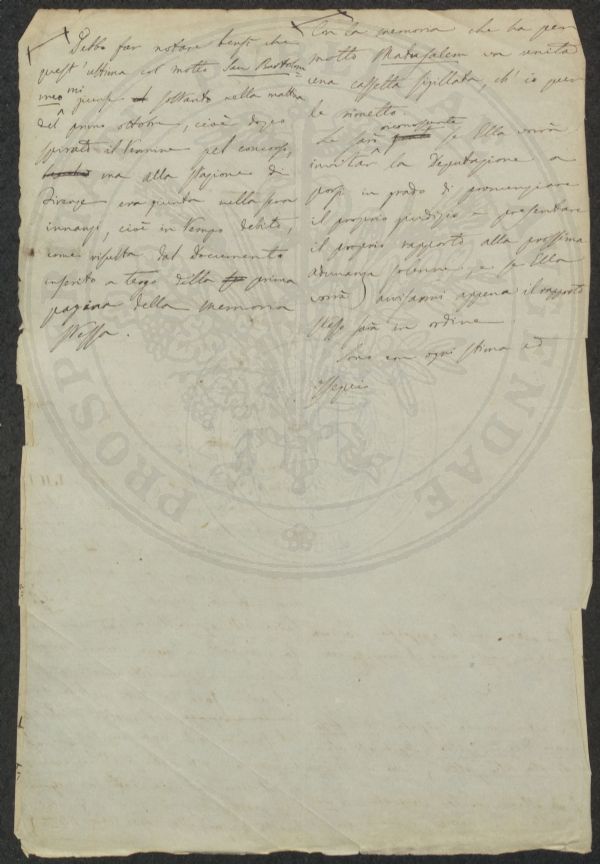 Debbo far notare bensì che
quest'ultima col motto San Bartolom=
meo mi giunse soltanto nella mattina
del primo ottobre, cioè dopo
spirato il termine pel concorso,
ma alla stazione di
Firenze era giunta nella sera
innanzi, cioè in tempo debito,
come risulta dal documento
inserito a tergo della prima
pagina della memoria
stessa.
Con la memoria che ha per
motto Matusalem va unita
una cassetta sigillata, ch'io pur
le rimetto.
Le sarò riconoscente se Ella vorrà
invitar la Deputazione a
porsi in grado di pronunziare
il proprio giudizio e presentare
il proprio rapporto alla prossima
adunanza solenne, e se Ella
vorrà avvisarmi appena il rapporto
stesso sarà in ordine
Sono con ogni stima ed
ossequio
PROSP
GENDAE